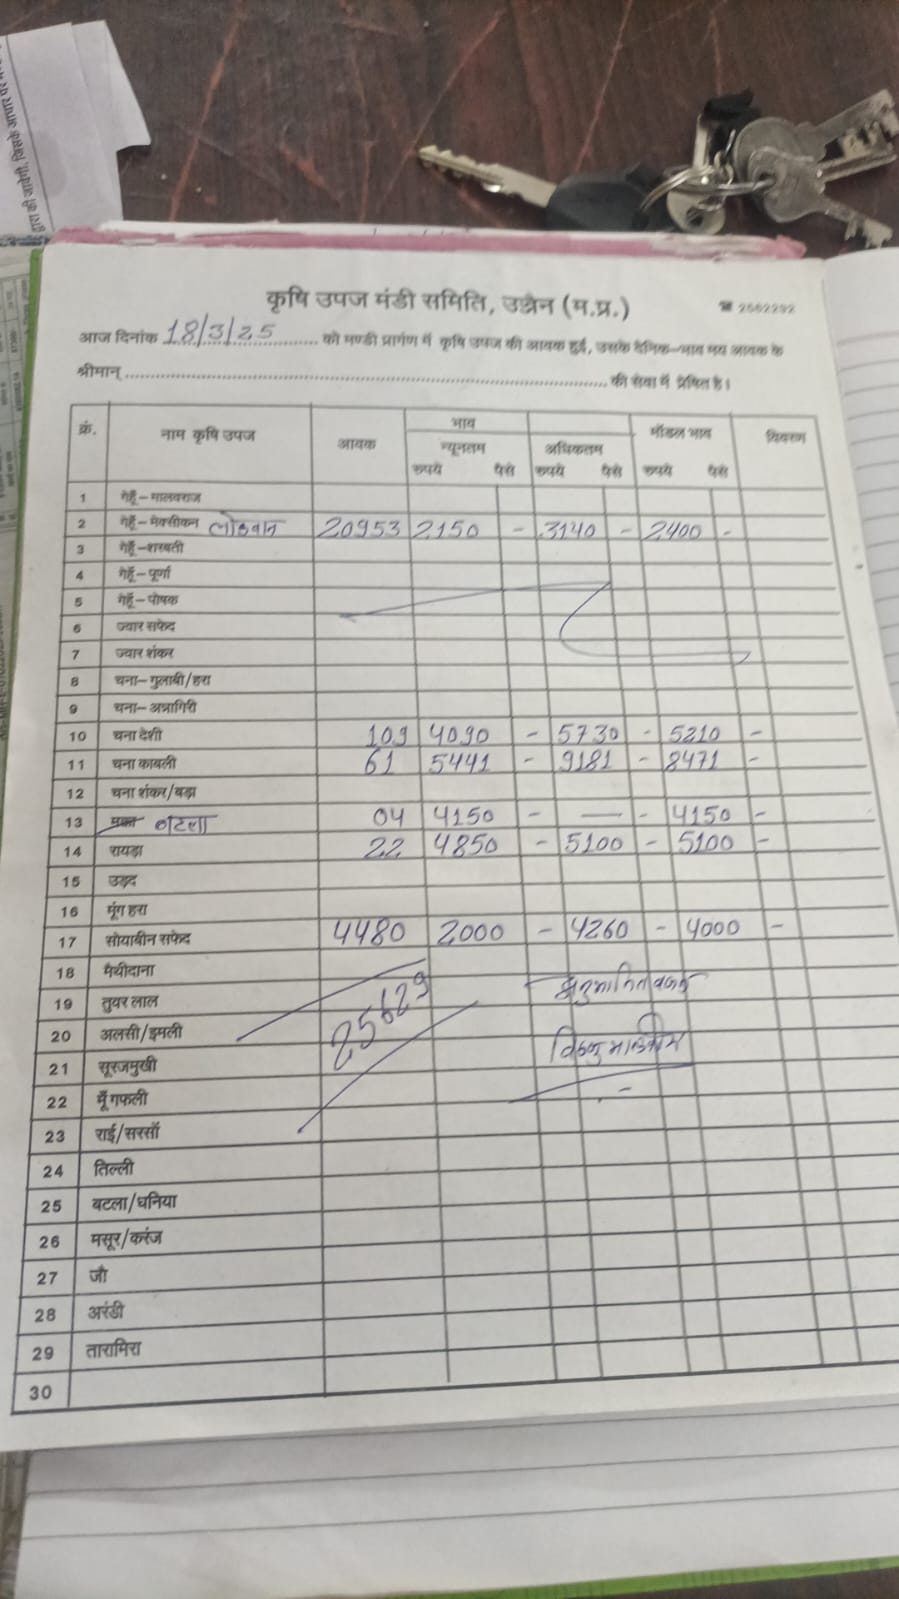 द्वारा की जावेगी, जिसके आधार पर
कृषि उपज मंडी समिति, उज्जैन (म.प्र.)
☎ 2562292
आज दिनांक 18/3/25 को मण्डी प्रांगण में कृषि उपज की आवक हुई, उसके दैनिक-भाव मय आवक के
श्रीमान् की सेवा में प्रेषित है।
क्रं. नाम कृषि उपज आवक भाव मॉडल भाव विवरण
न्यूनतम अधिकतम
रुपये पैसे रुपये पैसे रुपये पैसे
1 गेहूँ-मालवराज
2 गेहूँ-मेक्सीकन लोकवान 20953 2150 - 3140 - 2400 -
3 गेहूँ-शरबती
4 गेहूँ-पूर्णा
5 गेहूँ-पोषक
6 ज्वार सफेद
7 ज्वार शंकर
8 चना-गुलाबी/हरा
9 चना-अन्नागिरी
10 चना देशी 109 4090 - 5730 - 5210 -
11 चना काबली 61 5441 - 9181 - 8471 -
12 चना शंकर/बड़ा
13 मक्का बटला 04 4150 - — - 4150 -
14 रायड़ा 22 4850 - 5100 - 5100 -
15 उड़द
16 मूंग हरा
17 सोयाबीन सफेद 4480 2000 - 4260 - 4000 -
18 मैथीदाना
19 तुवर लाल 25629
20 अलसी/इमली
21 सूरजमुखी
22 मूँगफली
23 राई/सरसों
24 तिल्ली
25 बटला/धनिया
26 मसूर/करंज
27 जौ
28 अरंडी
29 तारामिरा
30